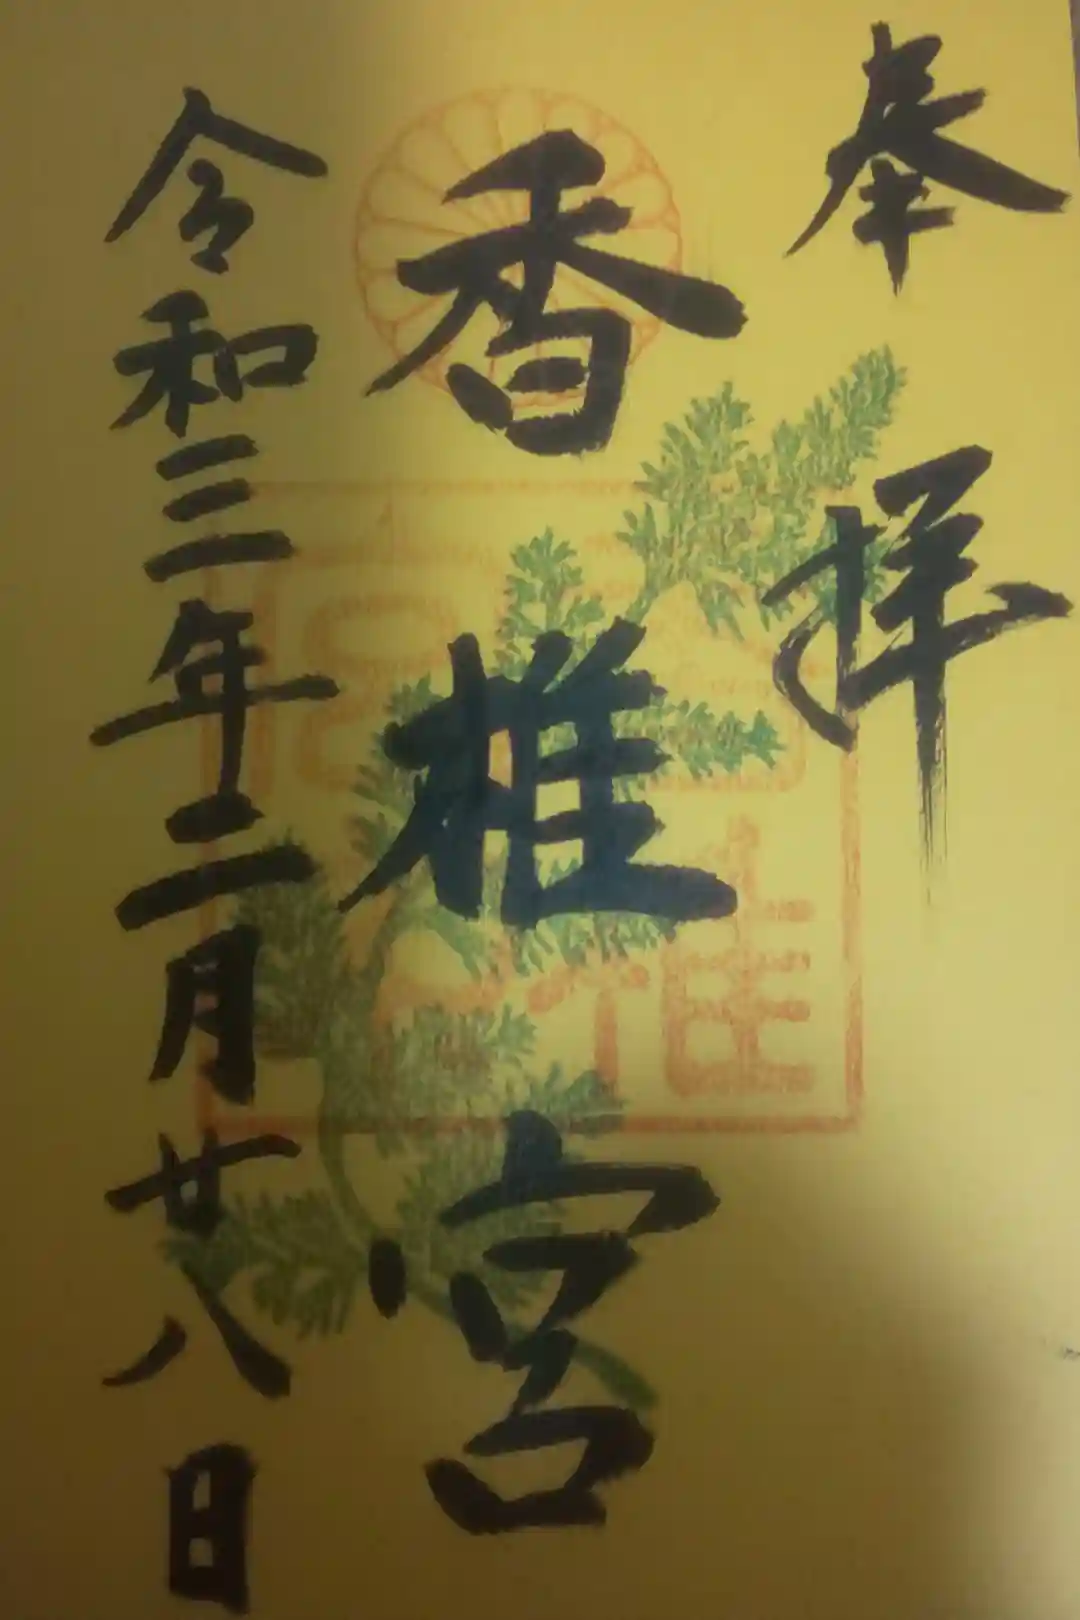 奉拝
香椎宮
令和三年二月廿八日
香椎宮